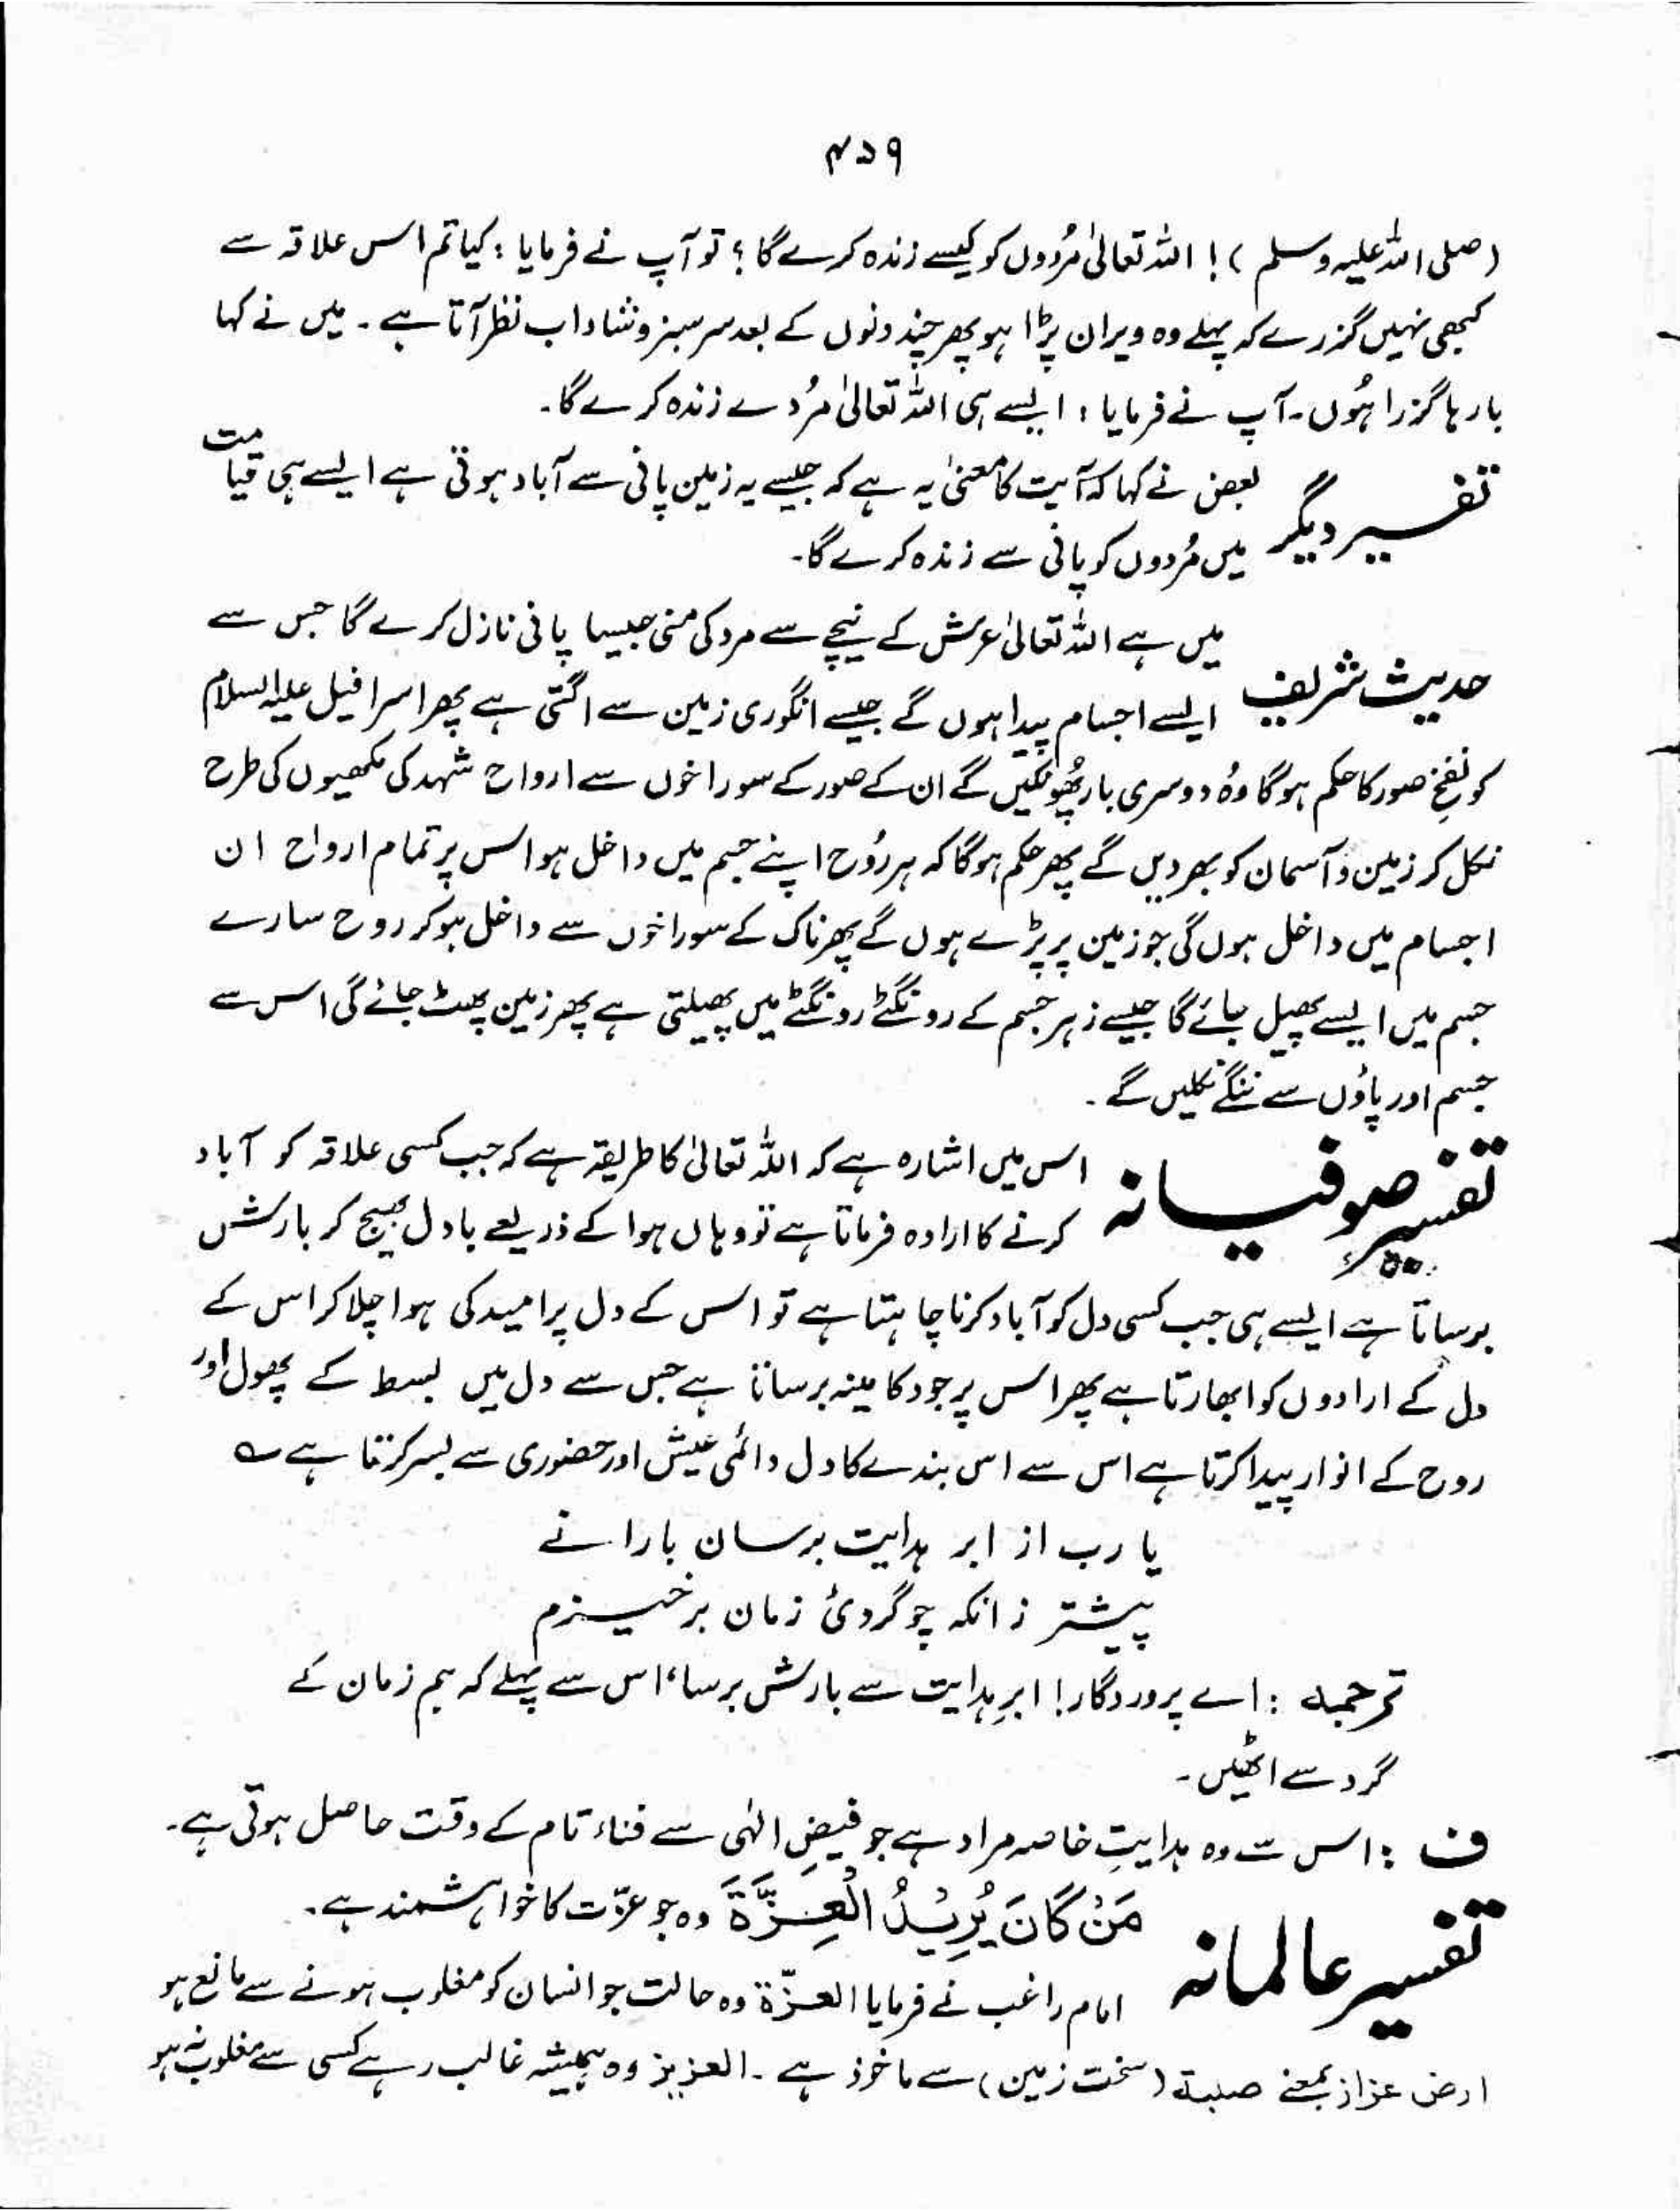 ۴۵۹
(صلی اللہ علیہ وسلم)! اللہ تعالیٰ مُردوں کو کیسے زندہ کرے گا؟ تو آپ نے فرمایا: کیا تم اس علاقہ سے
کبھی نہیں گزرے کہ پہلے وہ ویران پڑا ہو پھر چند دنوں کے بعد سرسبز و شاداب نظر آتا ہے۔ میں نے کہا
بارہا گزرا ہُوں۔ آپ نے فرمایا: ایسے ہی اللہ تعالیٰ مُردے زندہ کرے گا۔
تفسیر دیگر بعض نے کہا کہ آیت کا معنیٰ یہ ہے کہ جیسے یہ زمین پانی سے آباد ہوتی ہے ایسے ہی قیامت
میں مُردوں کو پانی سے زندہ کرے گا۔
حدیث شریف میں ہے اللہ تعالیٰ عرش کے نیچے سے مرد کی منی جیسا پانی نازل کرے گا جس سے
ایسے اجسام پیدا ہوں گے جیسے انگوری زمین سے اگتی ہے پھر اسرافیل علیہ السلام
کو نفخِ صور کا حکم ہوگا وُہ دوسری بار پُھونکیں گے ان کے صور کے سوراخوں سے ارواح شہد کی مکھیوں کی طرح
نکل کر زمین و آسمان کو بھر دیں گے پھر حکم ہوگا کہ ہر رُوح اپنے جسم میں داخل ہو اس پر تمام ارواح ان
اجسام میں داخل ہوں گی جو زمین پر پڑے ہوں گے پھر ناک کے سوراخوں سے داخل ہو کر روح سارے
جسم میں ایسے پھیل جائے گا جیسے زہر جسم کے رونگٹے رونگٹے میں پھیلتی ہے پھر زمین پھٹ جائے گی اس سے
جسم اور پاؤں سے ننگے نکلیں گے۔
تفسیرِ صوفیانہ اس میں اشارہ ہے کہ اللہ تعالیٰ کا طریقہ ہے کہ جب کسی علاقہ کو آباد
کرنے کا ارادہ فرماتا ہے تو وہاں ہوا کے ذریعے بادل بھیج کر بارش
برساتا ہے ایسے ہی جب کسی دل کو آباد کرنا چاہتا ہے تو اس کے دل پر امید کی ہوا چلا کر اس کے
دل کے ارادوں کو ابھارتا ہے پھر اس پر جود کا مینہ برساتا ہے جس سے دل میں بسط کے پھول اور
روح کے انوار پیدا کرتا ہے اس سے اس بندے کا دل دائمی عیش اور حضوری سے بسر کرتا ہے ؎
یا رب از ابر ہدایت برسان بارانے
پیشتر زانکہ چو گردئ زمان برخیزم
ترجمہ: اے پروردگار! ابرِ ہدایت سے بارش برسا، اس سے پہلے کہ ہم زمان کے
گرد سے اٹھیں۔
ف: اس سے وہ ہدایتِ خاصہ مراد ہے جو فیضِ الٰہی سے فناء تام کے وقت حاصل ہوتی ہے۔
تفسیر عالمانہ مَنْ كَانَ يُرِيْدُ الْعِزَّةَ وہ جو عزّت کا خواہشمند ہے۔
امام راغب نے فرمایا العزّۃ وہ حالت جو انسان کو مغلوب ہونے سے مانع ہو
ارض عزاز بمعنے صلبة (سخت زمین) سے ماخوذ ہے۔ العزیز وہ ہمیشہ غالب رہے کسی سے مغلوب نہ ہو